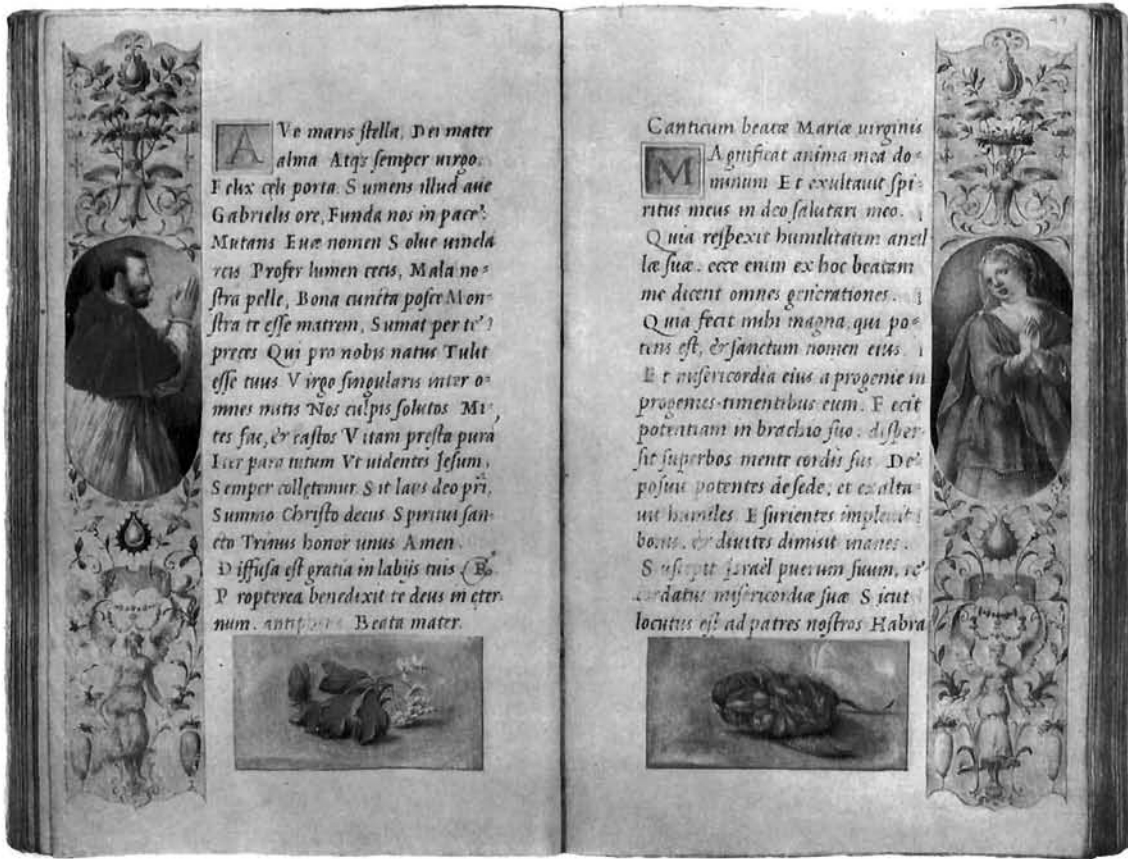 AVe maris stella, Dei mater
alma Atq̃ semper uirgo.
Felix celi porta. Sumens illud aue
Gabrielis ore, Funda nos in pace.
Mutans Euæ nomen Solue uincla
reis Profer lumen cecis, Mala no=
stra pelle, Bona cuncta posce Mon=
stra te esse matrem, Sumat per te
preces Qui pro nobis natus Tulit
esse tuus Virgo singularis inter o=
mnes mitis Nos culpis solutos Mi,
tes fac, & castos Vitam presta purã
Iter para tutum Vt uidentes Iesum,
Semper colletemur Sit laus deo pri,
Summo Christo decus Spiritui san=
cto Trinus honor unus Amen.
Diffusa est gratia in labijs tuis R.
Propterea benedixit te deus in eter=
num. Beata mater.
Canticum beatæ Mariæ uirginis
MAgnificat anima mea do=
minum Et exultauit spi=
ritus meus in deo salutari meo.
Quia respexit humilitatem ancil
læ suæ. ecce enim ex hoc beatam
me dicent omnes generationes.
Quia fecit mihi magna qui po=
tens est, & sanctum nomen eius.
Et misericordia eius a progenie in
progenies timentibus eum. Fecit
potentiam in brachio suo. disper=
sit superbos mente cordis sui De=
posuit potentes de sede, et exalta=
uit humiles Esurientes impleuit
bonis. & diuites dimisit inanes.
Suscepit Israël puerum suum, re=
cordatus misericordiæ suæ Sicut
locutus est ad patres nostros Habra